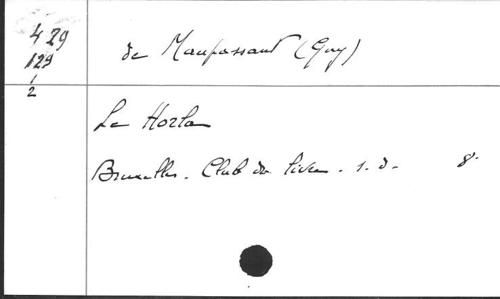 429
de Maupassant (Guy)
129
1
2
Le Horla
Bruxelles. Club du livre. s. d. 8°